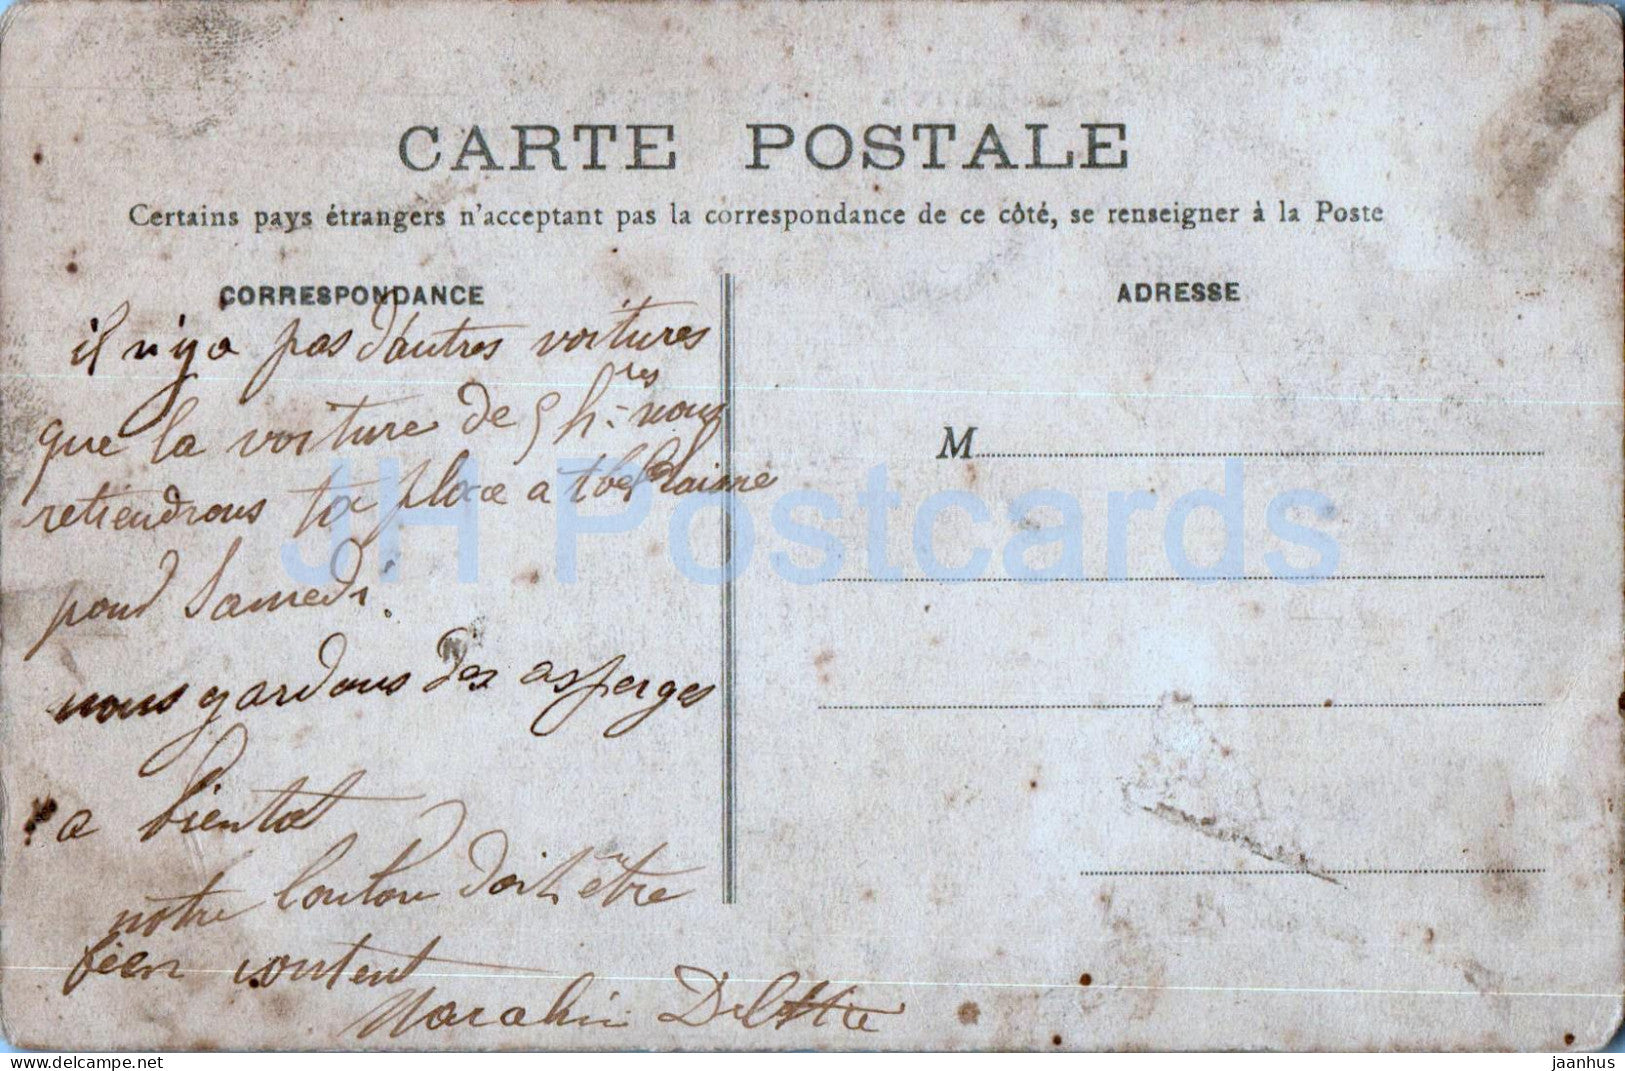 CARTE POSTALE
Certains pays étrangers n'acceptent pas la correspondance de ce côté, se renseigner à la Poste
CORRESPONDANCE
ADRESSE
il n'y a pas d'autres voitures
que la voiture de 5 h.res nous
retiendrons ta place a
pour Samedi.
nous gardons des asperges
a bientot
notre loulou doit être
bien content
M
JH Postcards
delcampe.net
jaanhus